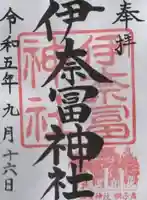 奉拝
伊奈冨神社
伊奈冨
神社
令和五年九月十六日